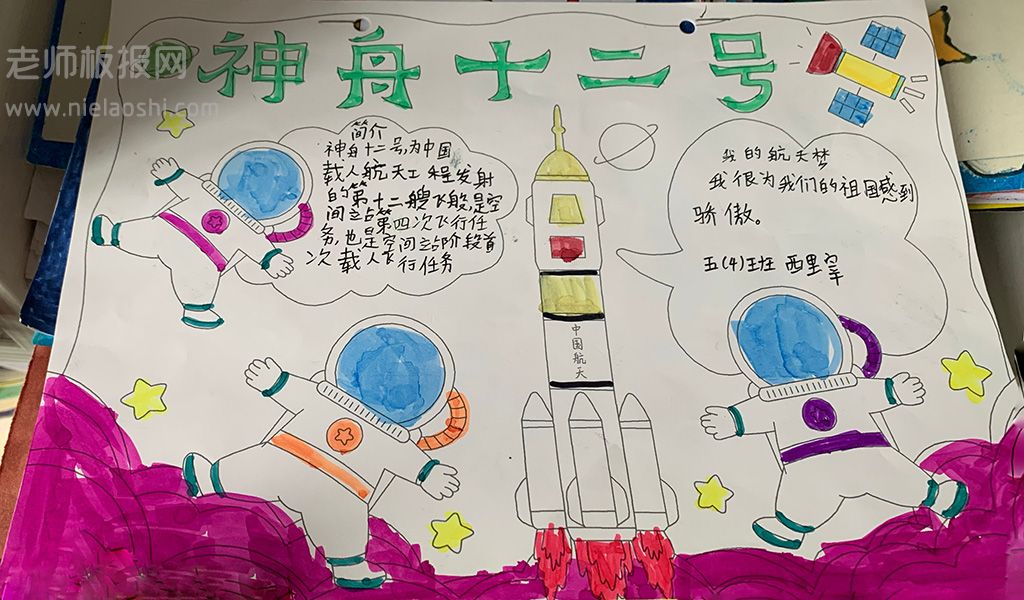 老师板报网
www.nielaoshi.com
神舟十二号
简介
神舟十二号为中国
载人航天工程发射
的第十二艘飞船,是空
间立占第四次飞行任
务,也是空间立占阶段首
次载人飞行任务
我的航天梦
我很为我们的祖国感到
骄傲。
五(4)班 西里
中国航天